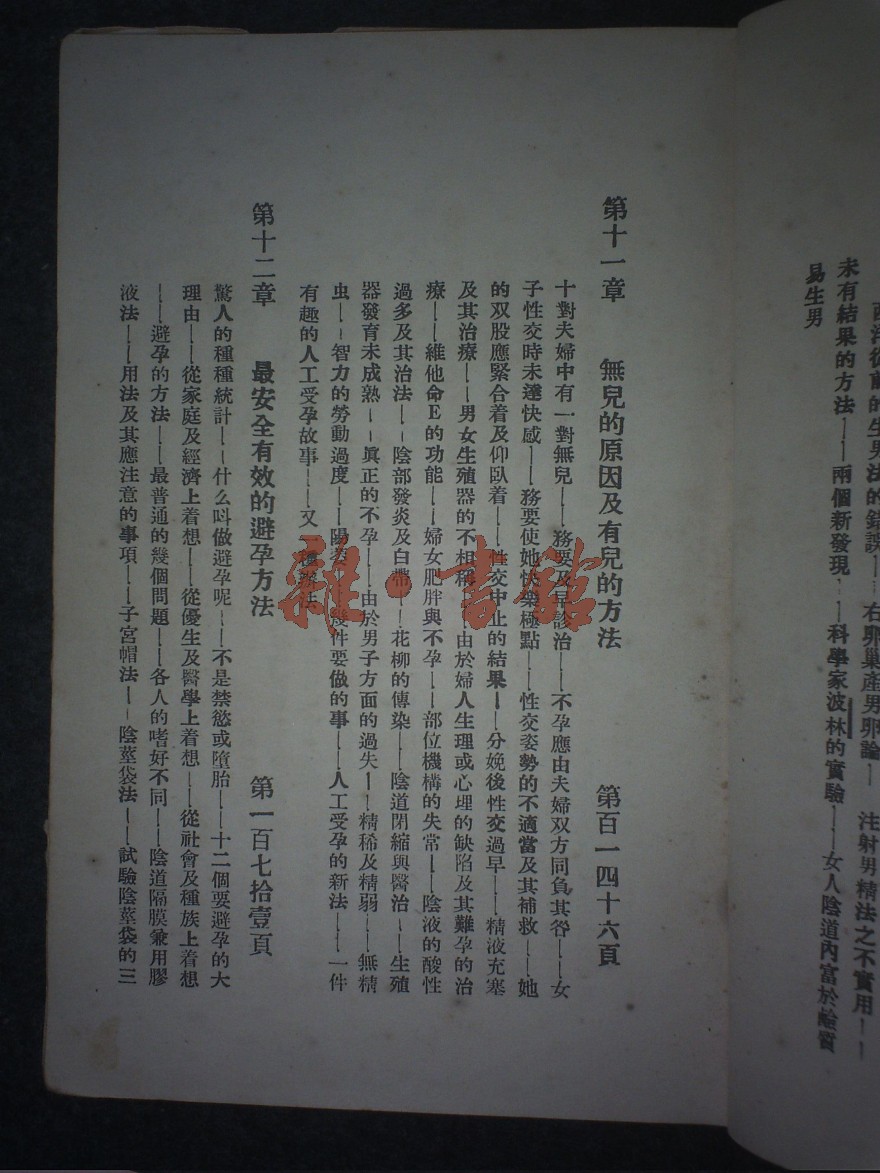 西洋從前的生男法的錯誤——右卵巢產男卵論——注射男精法之不實用——
未有結果的方法——兩個新發現——科學家波林的實驗——女人陰道內富於鹼質
易生男
第十一章 無兒的原因及有兒的方法 第百一四十六頁
十對夫婦中有一對無兒——務要及早診治——不孕應由夫婦双方同負其咎——女
子性交時未達快感——務要使她快樂極點——性交姿勢的不適當及其補救——她
的双股應緊合着及仰臥着——性交中止的結果——分娩後性交過早——精液充塞
及其治療——男女生殖器的不相稱——由於婦人生理或心理的缺陷及其難孕的治
療——維他命E的功能——婦女肥胖與不孕——部位機構的失常——陰液的酸性
過多及其治法——陰部發炎及白帶——花柳的傳染——陰道閉縮與醫治——生殖
器發育未成熟——眞正的不孕——由於男子方面的過失——精稀及精弱——無精
虫——智力的勞動過度——陽萎——幾件要做的事——人工受孕的新法——一件
有趣的人工受孕故事——又一種辦法
第十二章 最安全有效的避孕方法 第一百七拾壹頁
驚人的種種統計——什么呌做避孕呢——不是禁慾或墮胎——十二個要避孕的大
理由——從家庭及經濟上着想——從優生及醫學上着想——從社會及種族上着想
——避孕的方法——最普通的幾個問題——各人的嗜好不同——陰道隔膜兼用膠
液法——用法及其應注意的事項——子宮帽法——陰莖袋法——試驗陰莖袋的三
雜·書館